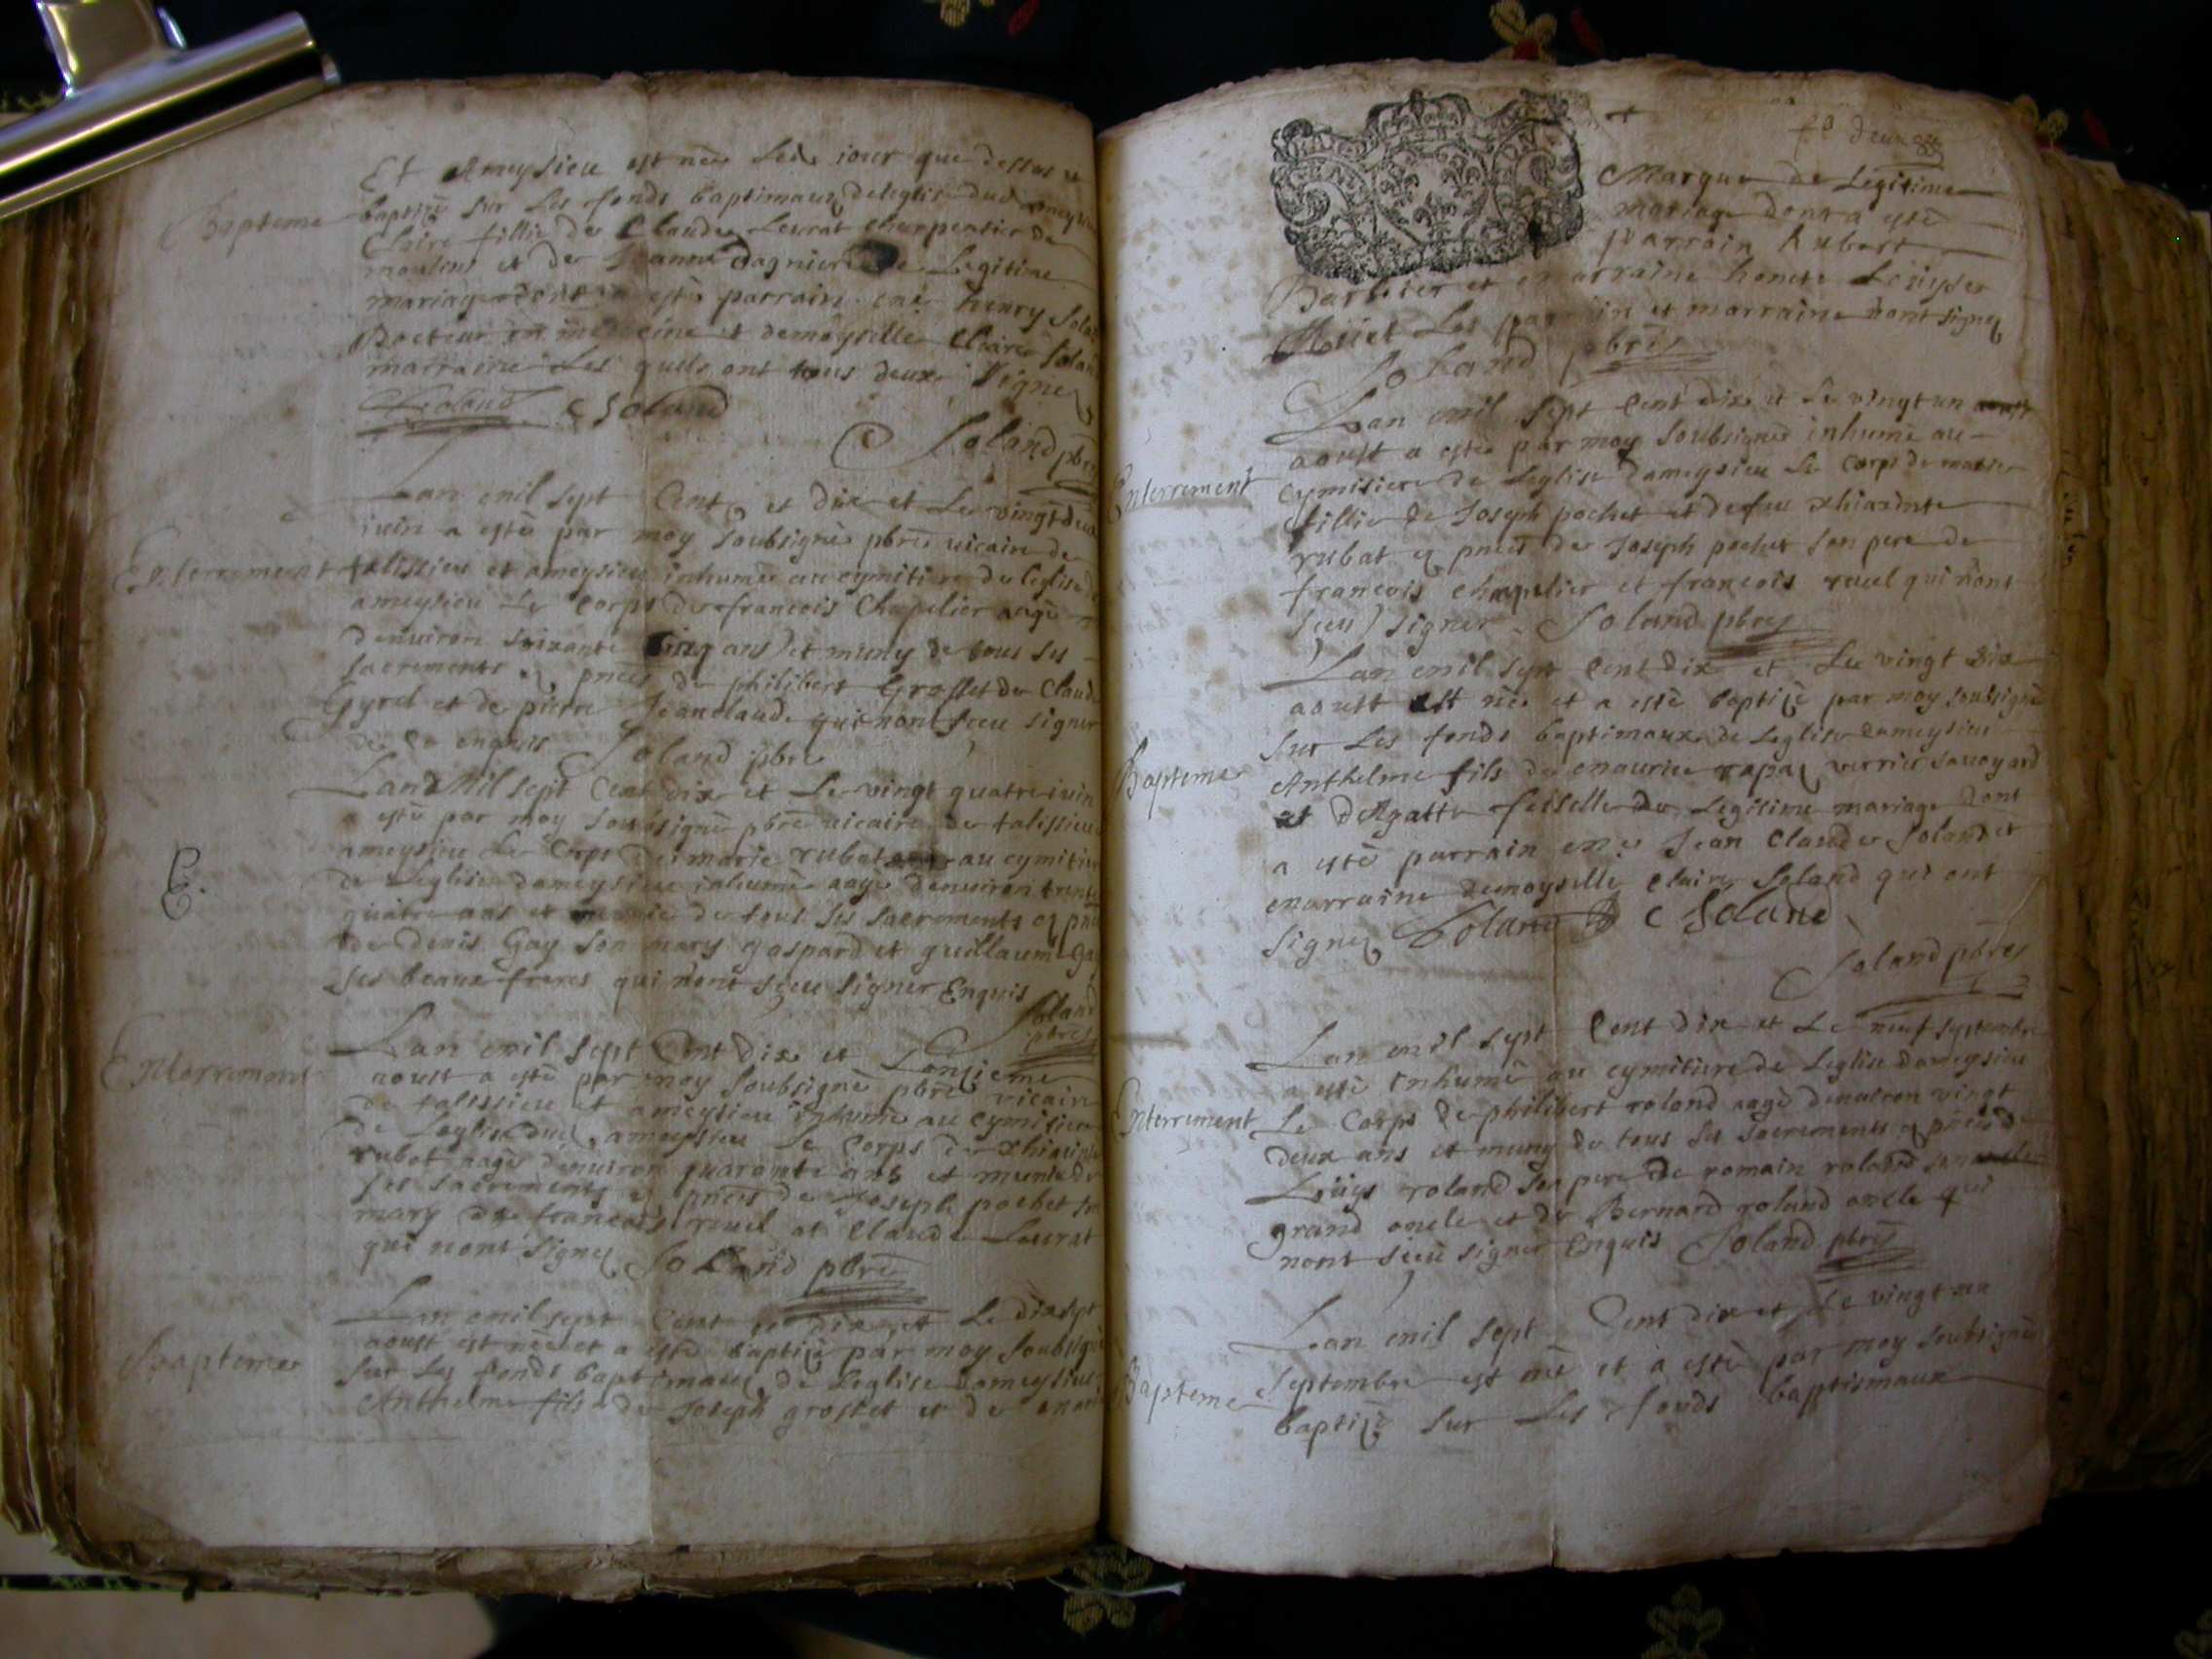 Et Ameysieu est née led. jour que dessus et
Bapteme baptizé sur les fonds baptimaux de leglise dud ameysieu
Claire fillie de Claude Leurat charpentier de
moulins et de Jeanne Dagnier de Legitime
mariage dont a esté parrain me henry Soland
Docteur en medecine et demoyselle Claire Soland
marraine Les quels ont tous deux Signez
Soland C Soland
Soland pbre
Lan mil sept Cent et dix et Le vingt deux
iuin a esté par moy Soubsigné pbre uicaire de
Enterrement talissieu et ameysieu inhumé au cymitiere de leglise d
ameysieu Le Corps de francois Chapelier aagé
denuiron soixante cinq ans et muny de tous ses
sacrements pnces de philibert Grosset de Claude
Gyrel et de pierre Jeanclaude qui nont sceu signer
de ce enquis Soland pbre
Lan Mil sept Cent dix et Le vingt quatre iuin
a esté par moy soubsigné pbre uicaire de talissieu
ameysieu Le Corps de marie rubat au cymitier
E. de Leglise dameysieu inhumé aagé denuiron trente
quatre ans et munie de tous ses sacrements pnce
de denis Gay son mary gaspard et guillaume Ga
ses beaux freres qui nont sceu signer Enquis
Soland
pbre
Lan mil sept Cent dix et Lonzieme
Enterrement aoust a esté par moy soubsigné pbre vicaire
de talissieu et ameysieu inhumé au cymitiere
de Leglise dud. ameysieu Le Corps de
rubat aagé denuiron quarante ans et munie de
ses sacrements pnces de Joseph pochet son
mary de francois reuel et Claude Leurat
qui nont signez Soland pbre
Lan mil sept Cent et dix et Le dixsept
aoust est née et a esté baptizé par moy soubsigné
Bapteme sur Les fonds baptimaux de Leglise dameysieu
Anthelme fils de Joseph grosset et de
fo deux
Marque de Legitime
mariage dont a esté
parrain hubert
Barbier et marraine honete Loüyse
Les parrain et marraine nont signez
Soland pbre
Lan mil sept Cent dix et Le vingtun
aoust a esté par moy soubsigné inhumé au
Enterrement Cymitiere de Leglise dameysieu Le Corps de
fillie de Joseph pochet et de feu
rubat pnces de Joseph pochet son pere de
francois chapelier et francois reuel qui nont
sceu signer Soland pbre
Lan mil sept Cent dix et Le vingt six
aoust est née et a esté baptizé par moy soubsigné
sur Les fonds baptimaux de Leglise dameysieu
Bapteme Anthelme fils de maurice verrier sauoyard
et dAgatte de Legitime mariage dont
a esté parrain me Jean Claude Soland et
marraine demoyselle Claire Soland qui ont
signez Soland C Soland
Soland pbre
Lan mil sept Cent dix et Le neuf septembre
a esté inhumé au cymitiere de Leglise dameysieu
Enterrement Le Corps de philibert roland aagé denuiron vingt
deux ans et muny de tous ses sacrements pnces de
Loüys roland son pere de romain roland son
grand oncle et de Bernard roland oncle qui
nont sceu signer Enquis Soland pbre
Lan mil sept Cent dix et Le vingt
septembre est né et a esté par moy soubsigné
Bapteme baptizé sur Les fonds baptismaux